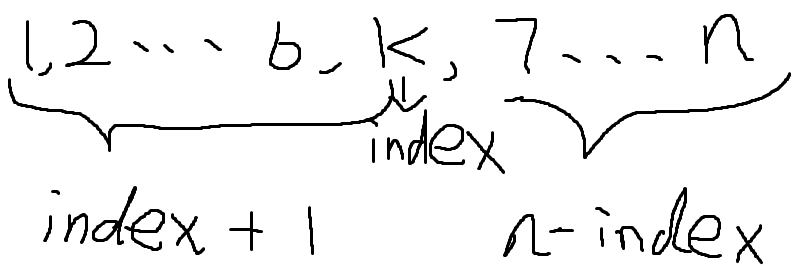 1,2... 6, k, 7... n
index
index + 1 n-index